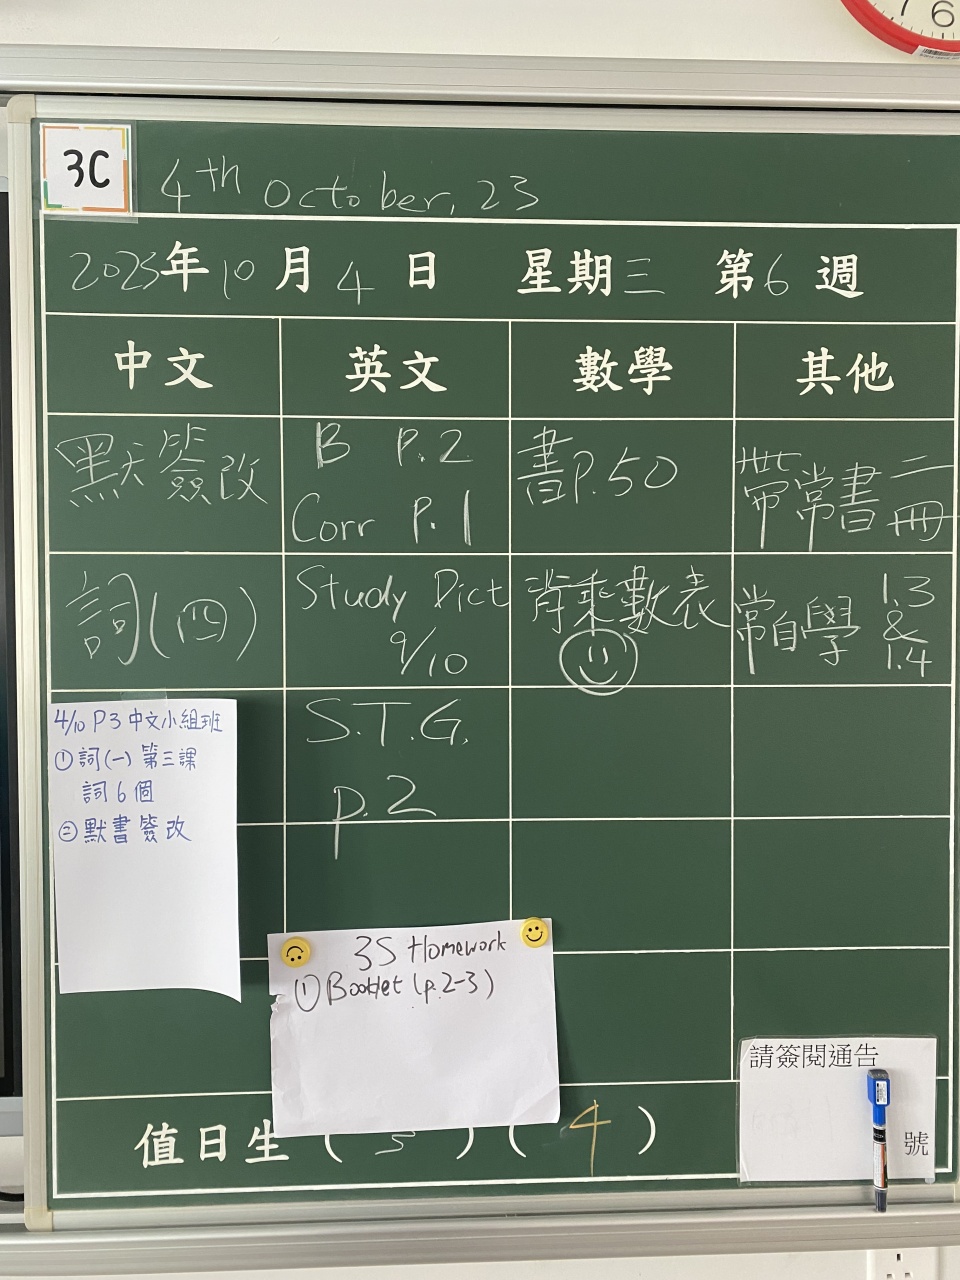 3C
4th October, 23
2023年10月4日 星期三 第6週
中文 英文 數學 其他
默簽改
B P.2
Corr P.1
書P.50
帶常書二冊
詞(四)
Study Dict
9/10
背乘數表
常自學 1.3 & 1.4
S.T.G.
p.2
4/10 P3 中文小組班
①詞(一) 第三課
詞6個
②默書簽改
3S Homework
① Booklet (p.2-3)
請簽閱通告
號
值日生 ( 5 ) ( 4 )
7 6